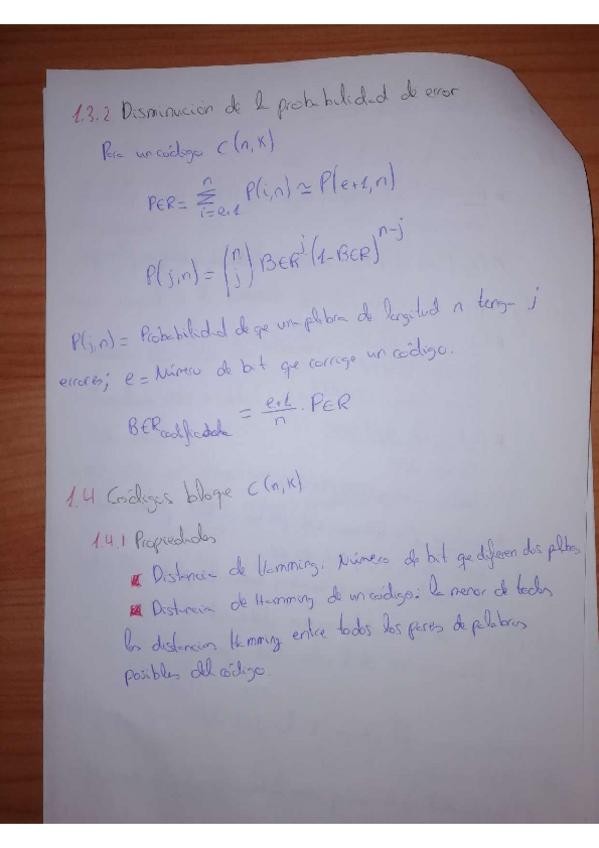 1.3.2 Disminución de la probabilidad de error
Para un código C(n,k)
PER = \sum_{i=e+1}^{n} P(i,n) ≃ P(e+1,n)
P(j,n) = \binom{n}{j} BER^j (1-BER)^{n-j}
P(j,n) = Probabilidad de que una palabra de longitud n tenga j
errores; e = Número de bit que corrige un código.
BER_{codificada} = \frac{e+1}{n} · PER
1.4 Códigos bloque C(n,k)
1.4.1 Propiedades
Distancia de Hamming. Número de bit que difieren dos palabras
Distancia de Hamming de un código: la menor de todas
las distancias Hamming entre todos los pares de palabras
posibles del código.